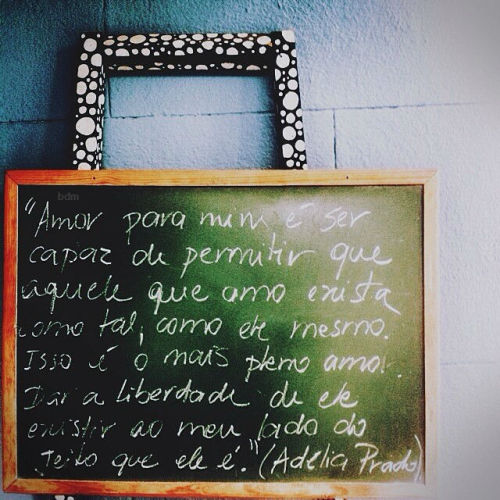 bdm
"Amor para mim é ser
capaz de permitir que
aquele que amo exista
como tal, como ele mesmo.
Isso é o mais pleno amor.
Dar a liberdade de ele
existir ao meu lado do
jeito que ele é." (Adélia Prado)